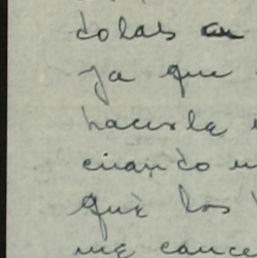 dolas en
ya que
hacerle
cuando
que los
me cance